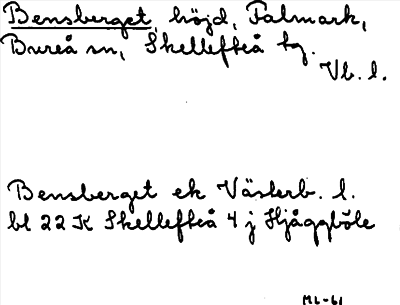 Bensberget, höjd, Falmark,
Bureå sn, Skellefteå tg.
Vb. l.
Bensberget ek Västerb. l.
bl 22 K Skellefteå 4 j Hjåggböle
M6-61